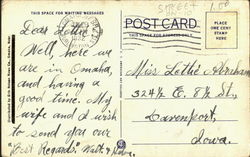 STREET 1.00
THIS SPACE FOR WRITING MESSAGES
POST CARD
THIS SPACE FOR ADDRESS ONLY
PLACE
ONE CENT
STAMP
HERE
Dear Lottie
Well, here we
are in Omaha,
and having a
good time. My
wife and I wish
to send you our
"Best Regards". Walt &
Miss Lottie Abraham
324½ E. 8½ St.,
Davenport,
Iowa.